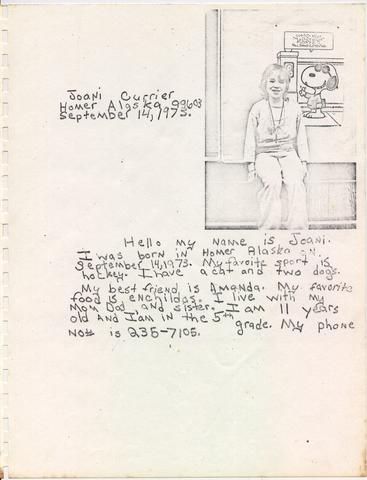 Joani Currier
Homer Alaska 99603
September 14, 1973.
Hello my name is Joani.
I was born in Homer Alaska on
September 14, 1973. My favorite sport is
hockey. I have a cat and two dogs.
My best friend is Amanda. My favorite
food is enchildas. I live with my
Mom Dad, and sister. I am 11 years
old and I am in the 5th grade. My phone
No# is 235-7105.